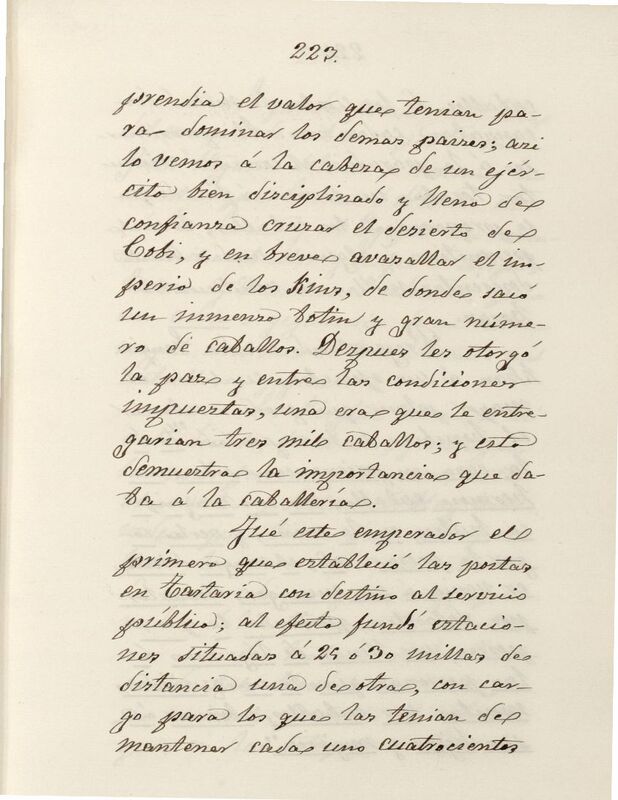 223.
prendia el valor que tenian pa-
ra dominar los demas paises; asi
lo vemos á la cabeza de un ejér-
cito bien disciplinado y lleno de
confianza cruzar el desierto de
Cobi, y en breve avasallar el im-
perio de los Kins, de donde sacó
un inmenso botin y gran núme-
ro de caballos. Despues les otorgó
la paz y entre las condiciones
impuestas, una era que le entre-
garian tres mil caballos; y esto
demuestra la importancia que da-
ba á la caballería.
Fué este emperador el
primero que estableció las postas
en Tartaria con destino al servicio
público; al efecto fundó estacio-
nes situadas á 25 ó 30 millas de
distancia una de otra, con car-
go para los que las tenian de
mantener cada uno cuatrocientos